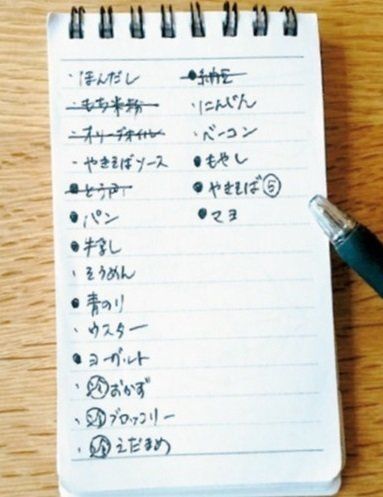 ・ほんだし
・もち米粉
・オリーブオイル
・やきそばソース
●パン
●牛乳
・そうめん
●青のり
・ウスター
●ヨーグルト
・おかず
・ブロッコリー
・えだまめ
●納豆
・にんじん
・ベーコン
●もやし
●やきそば⑤
●マヨ